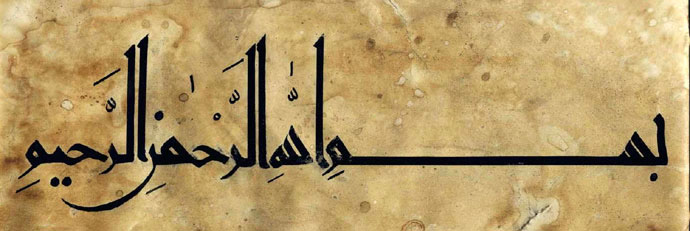 بسم اللهِ الرَّحْمٰنِ الرَّحيمِ